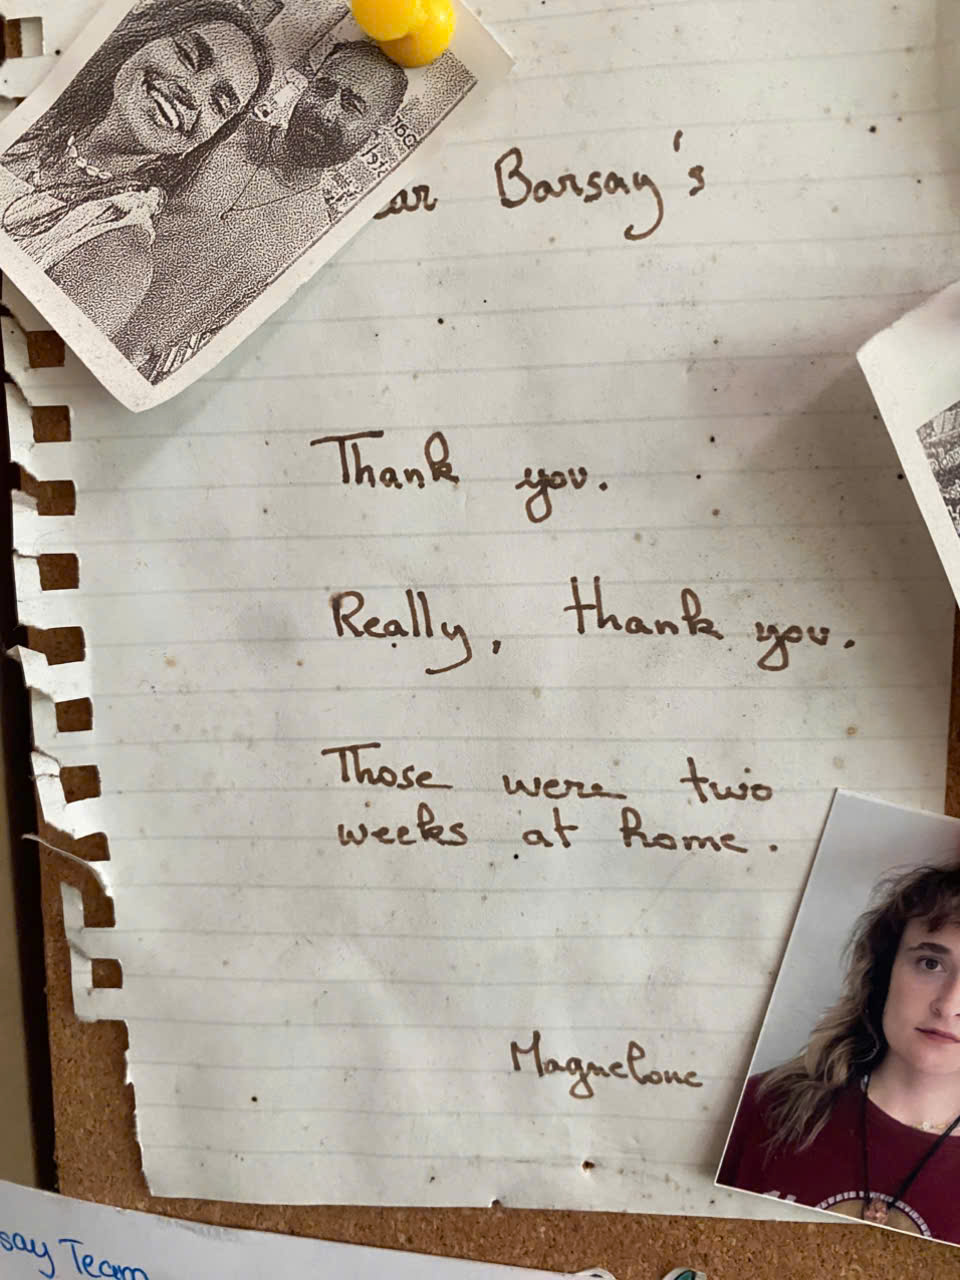 Barsay's
Thank you.
Really, thank you.
Those were two
weeks at home.
Maguelone
say Team